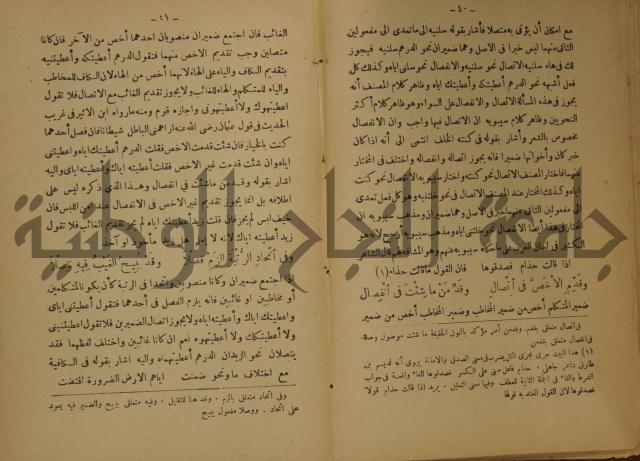 - ٤٠ -
مع امكان أن يؤتى به متصلا فأشار بقوله سلنيه الى ما تعدى الى مفعولين
الثانى منهما ليس خبرا فى الاصل وهما ضميران نحو الدرهم سلنيه فيجوز
لك فى هاء سلنيه الاتصال نحو سلنيه والانفصال نحو سلنى اياه وكذلك كل
فعل أشبهه نحو الدرهم أعطيتكه وأعطيتك اياه وظاهر كلام المصنف أنه
يجوز فى هذه المسألة الاتصال والانفصال على السواء وهو ظاهر كلام أكثر
النحويين وظاهر كلام سيبويه ان الاتصال فيها واجب وان الانفصال
مخصوص بالشعر وأشار بقوله فى كنته الخلف انتمى الى أنه اذا كان
خبر كان وأخواتها ضميرا فانه يجوز اتصاله وانفصاله واختلف فى المختار
منهما فاختار المصنف الاتصال نحو كنته واختار سيبويه الانفصال نحو كنت
اياه وكذلك المختار عند المصنف الاتصال فى نحو خلتنيه وهو كل فعل تعدى
الى مفعولين الثانى منهما خبر فى الاصل وهما ضميران ومذهب سيبويه ان
المختار فى هذا أيضا الانفصال نحو خلتنى اياه ومذهب سيبويه أرجح لانه هو
الكثير فى لسان العرب على ما حكاه سيبويه عنهم وهو المشافه لهم قال الشاعر
اذا قالت حذام فصدقوها فان القول ما قالت حذام (١)
وقدِّم الأخصَّ فى اتِّصال وقدِّمَنْ ما شِئْتَ فى انْفِصال
ضمير المتكلم أخص من ضمير المخاطب وضمير المخاطب أخص من ضمير
فى اتصال متعلق بقدم. وقدمن أمر مؤكد بالنون الخفيفة ما شئت موصول وصلة
فى انفصال متعلق بقدمن
(١) هذا البيت جرى مجرى المثل يضرب فى معنى الصدق والامانة يروى أنه لديسم بن
طارق شاعر جاهلى. حذام فاعل مبنى على الكسر فصدقوها الفاء واقعة فى جواب
الشرط والفاء فى الجملة الثانية للعطف وفيها معنى التعليل. يريد اذا قالت حذام قولا
فصدقوها لان القول المعتد به قولها
- ٤١ -
الغائب فان اجتمع ضميران منصوبان احدهما أخص من الآخر فان كانا
متصلين وجب تقديم الاخص منهما فتقول الدرهم أعطيتكه وأعطيتنيه
بتقديم الكاف والياء على الهاء لانهما أخص من الهاء لان الكاف للمخاطب
والياء للمتكلم والهاء للغائب ولا يجوز تقديم الغائب مع الاتصال فلا تقول
اعطيتهوك ولا أعطيتهونى واجازه قوم ومنه ما رواه ابن الاثير فى غريب
الحديث فى قول عثمان رضى الله عنه اراهمنى الباطل شيطانا فان فصل أحدهما
كنت بالخيار فان شئت قدمت الاخص فقلت الدرهم أعطيتك اياه واعطيتنى
اياه وان شئت قدمت غير الاخص فقلت أعطيته اياك وأعطيته اياى واليه
اشار بقوله وقدمن ما شئت فى انفصال وهذا الذى ذكره ليس على
اطلاقه بل انما يجوز تقديم غير الاخص فى الانفصال عند امن اللبس فان
خيف لبس لم يجز فان قلت زيد أعطيتك اياه لم يجز تقديم الغائب فلا تقول
زيد أعطيته اياك لانه لا يعلم هل زيد مأخوذ او آخذ
وفى اتِّحاد الرتبة الزمْ فصلا وقد يُبيحُ الغيبُ فيه وصلا
اذا اجتمع ضميران وكانا منصوبين واتحدا فى الرتبة كأن يكونا لمتكلمين
أو مخاطبين او غائبين فانه يلزم الفصل فى أحدهما فتقول أعطيتنى اياى
واعطيتك اياك وأعطيته اياه ولا يجوز اتصال الضميرين فلا تقول اعطيتنينى
ولا أعطيتكك ولا أعطيتهوه نعم ان كانا غائبين واختلف لفظهما فقد
يتصلان نحو الزيدان الدرهم أعطيتهماه واليه اشار بقوله فى الكافية
مع اختلاف ما ونحو ضمنت اياهم الارض الضرورة اقتضت
وفى اتحاد متعلق بالزم. وقد هنا للتقليل. وفيه متعلق بيبيح والضمير فيه يعود
على اتحاد. ووصلا مفعول يبيح
جامعة النجاح الوطنية